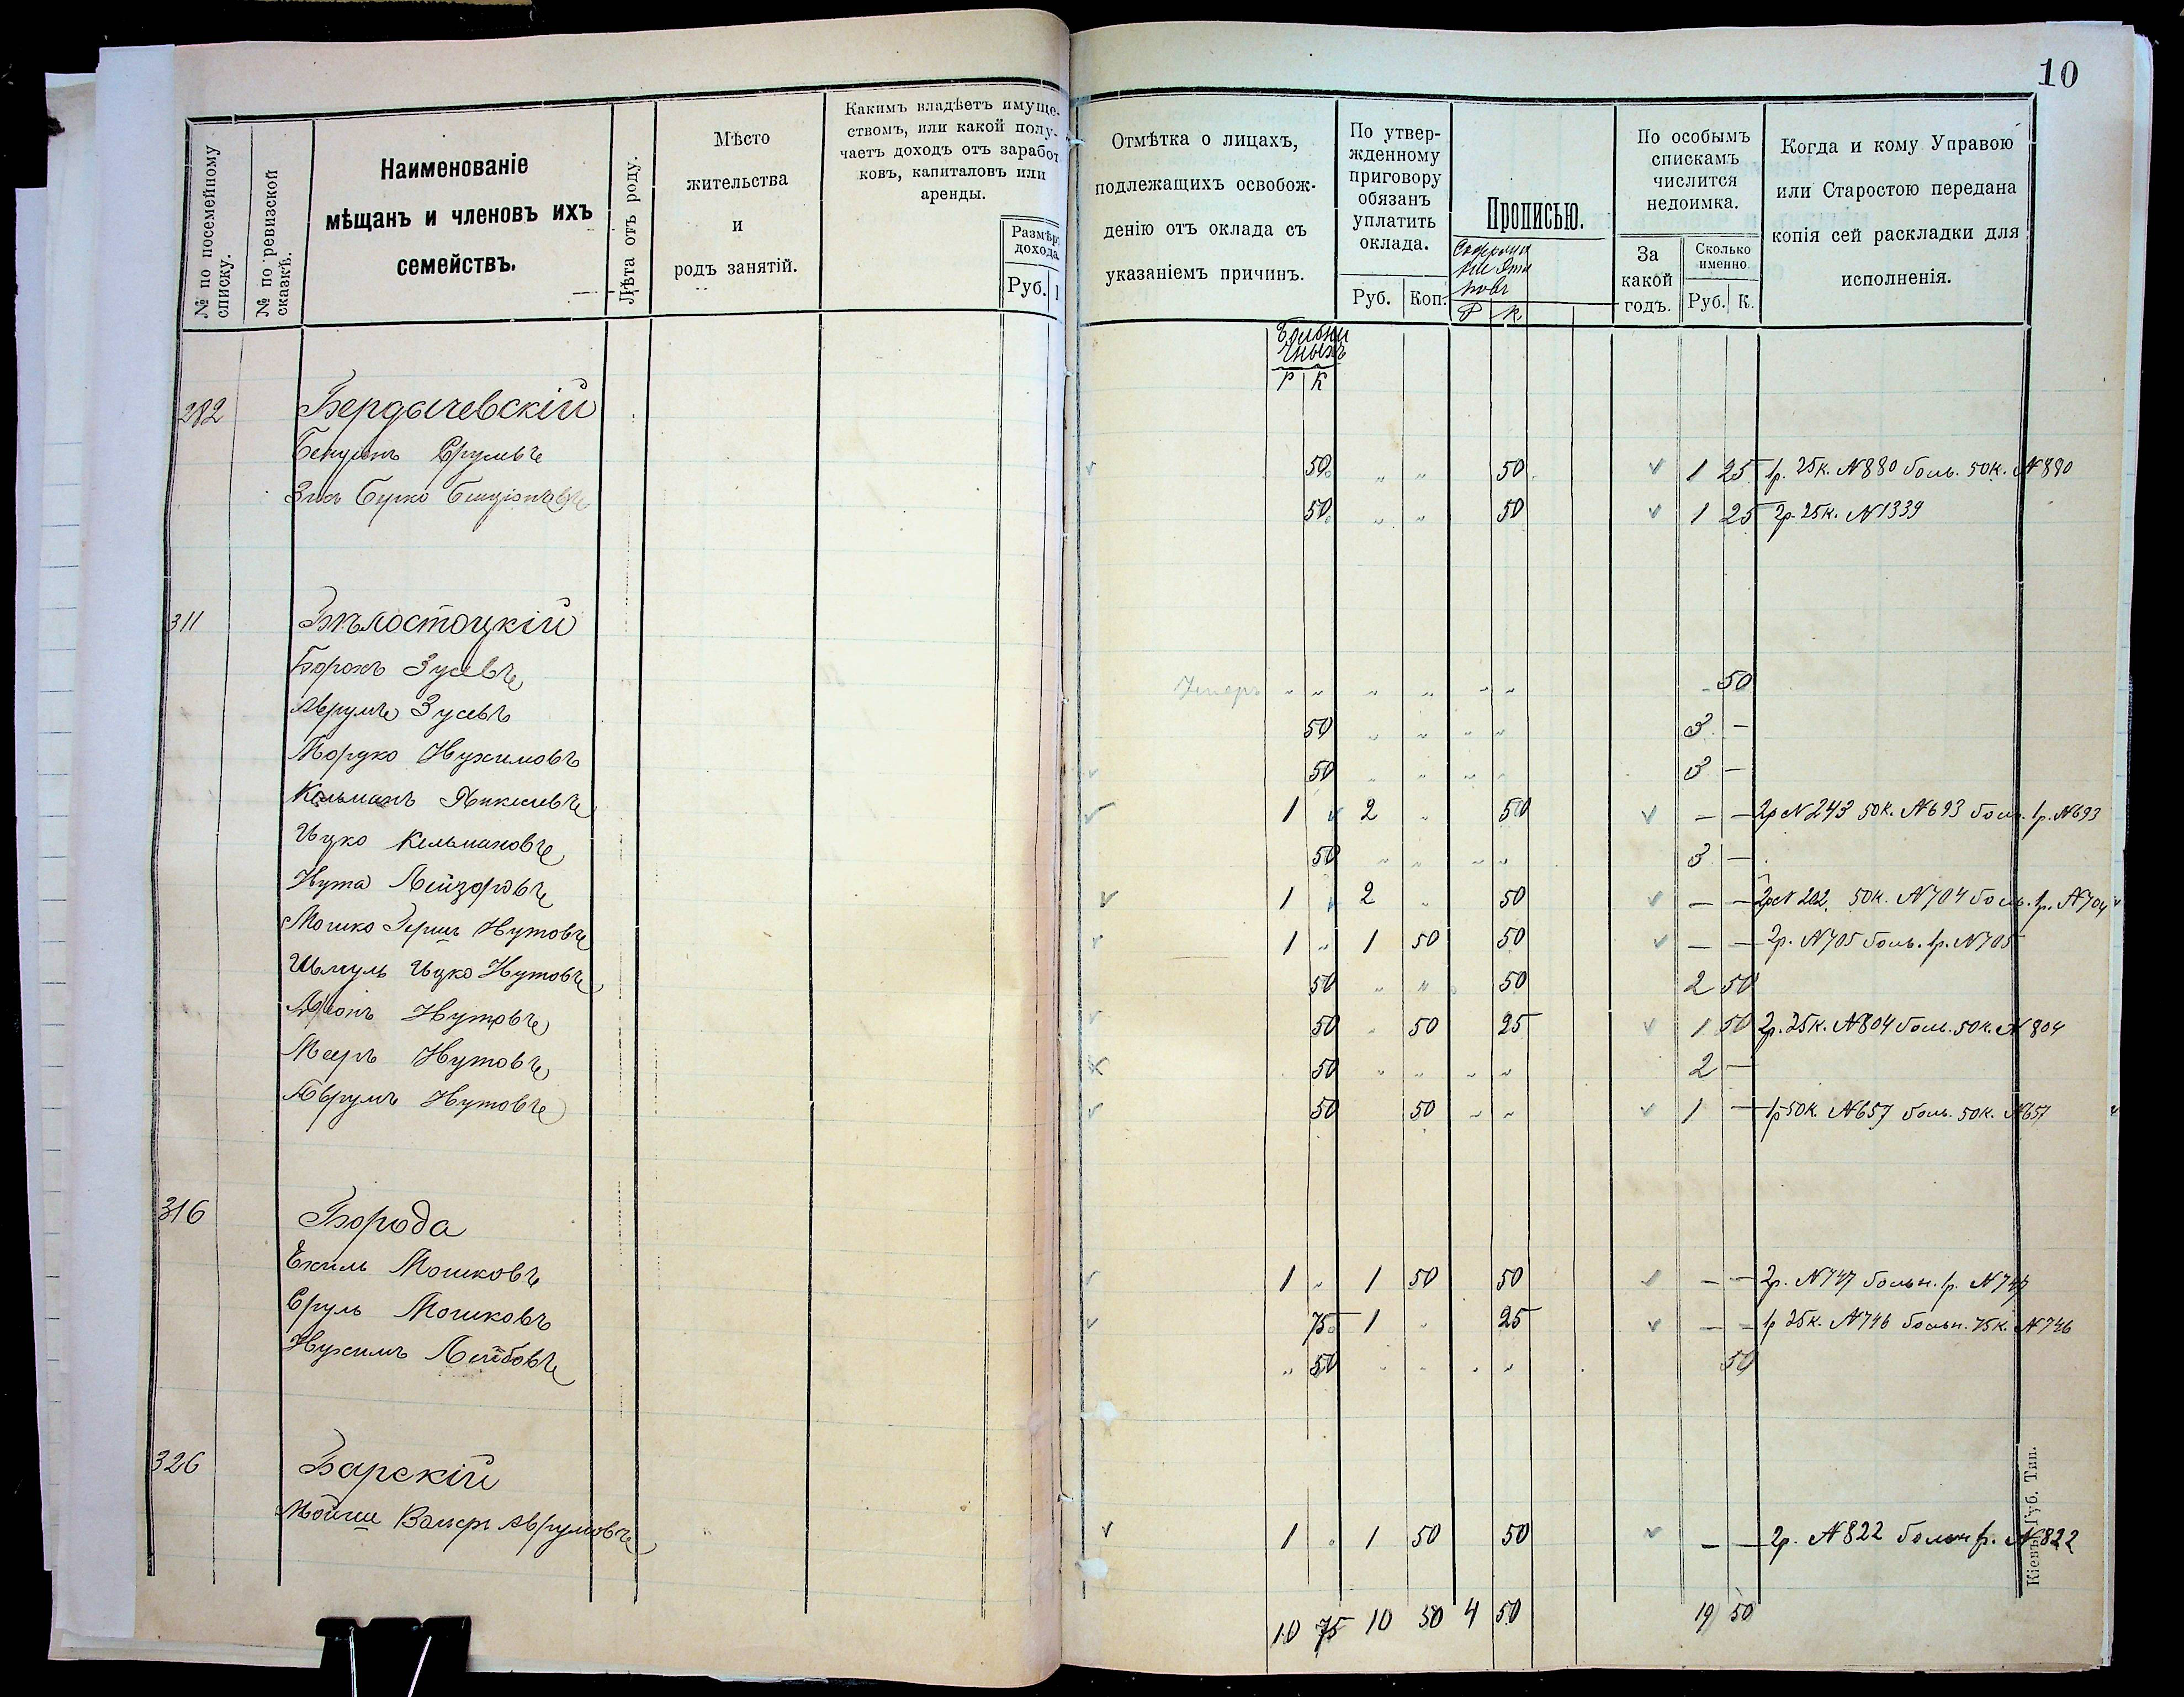 10
№ по посемейному списку.
№ по ревизской сказкѣ.
Наименованіе
мѣщанъ и членовъ ихъ
семействъ.
Лѣта отъ роду.
Мѣсто
жительства
и
родъ занятій.
Какимъ владѣетъ имуще-
ствомъ, или какой полу-
чаетъ доходъ отъ заработ
ковъ, капиталовъ или
аренды.
Размѣръ
дохода
Руб.
Отмѣтка о лицахъ,
подлежащихъ освобож-
денію отъ оклада съ
указаніемъ причинъ.
По утвер-
жденному
приговору
обязанъ
уплатить
оклада.
Руб. Коп.
Прописью.
Р К.
По особымъ
спискамъ
числится
недоимка.
За
какой
годъ.
Сколько
именно
Руб. К.
Когда и кому Управою
или Старостою передана
копія сей раскладки для
исполненія.
Больни
чныхъ
Р К
282 Бердычевскій
Бенціонъ Срулевъ 50 „ „ 50 1 25 1р. 25к. №880 боль. 50к. №880
Зись Берко Бенціоновъ 50 „ „ 50 1 25 2р. 25к. №1339
311 Бѣлостоцкій
Борохъ Зусевъ Умеръ „ „ „ „ „ „ 50
Аврумъ Зусевъ 50 „ „ „ „ 3 —
Мордко Нухимовъ 50 „ „ „ „ 3 —
Кельманъ 1 2 „ 50 — — 2р №243 50к. №693 боль. 1р. №693
Ицко Кельмановъ 50 „ „ „ „ 3 —
Нута Лейзоровъ 1 2 „ 50 — — 2р № 202. 50к. №704 боль. 1р. №704
Мошко Гершъ Нутовъ 1 „ 1 50 50 — — 2р. №705 боль. 1р. №705
Шмуль Ицко Нутовъ 50 „ „ 50 2 50
Нутовъ 50 „ 50 25 1 50 2р. 25к. №804 боль. 50к. №804
Мееръ Нутовъ 50 „ „ „ „ 2 —
Аврумъ Нутовъ 50 50 „ „ 1 — 1р 50к. №657 боль. 50к. №657
316 Борода
Ехиль Мошковъ 1 „ 1 50 50 — — 2р. №747 больн. 1р. №747
Сруль Мошковъ 75 1 „ 25 — — 1р 25к. №746 больн. 75к. №746
Нухимъ Лейбовъ „ 50 „ „ „ „ 50
326 Барскій
Мойше Вольфъ Аврумовъ 1 „ 1 50 50 — — 2р. №822 больн 1р. №822
10 75 10 50 4 50 19 50
Кіевъ. Губ. Тип.